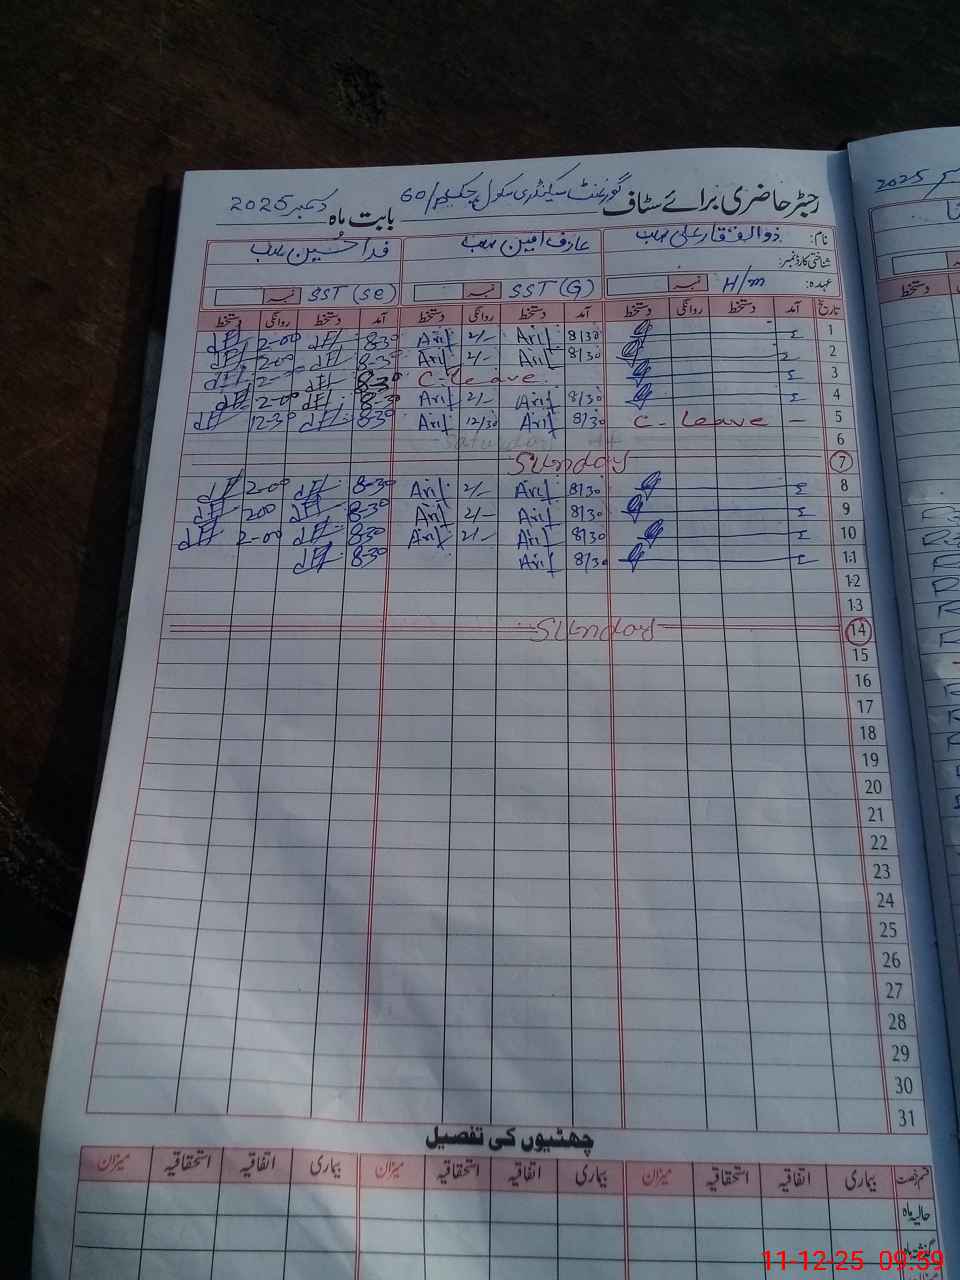 رجسٹر حاضری برائے سٹاف گورنمنٹ سیکنڈری سکول 60/ بابت ماہ دسمبر 2025
نام: ذوالفقار علی صاحب عارف امین صاحب فدا حسین صاحب
شناختی کارڈ نمبر:
عہدہ: H/m نمبر SST (G) نمبر SST (Se) نمبر
تاریخ آمد دستخط روانگی دستخط آمد دستخط روانگی دستخط آمد دستخط روانگی دستخط
1 8/30 Arif 2/- Arif 8-30 2-00
2 8/30 Arif 2/- Arif 8-30 2-00
3 C-leave 8-30 2-00
4 8/30 Arif 2/- Arif 8-30 2-00
5 C- Leave - 8/30 Arif 12/30 Arif 8-30 12-30
6 Saturday
7 Sunday
8 8/30 Arif 2/- Arif 8-30 2-00
9 8/30 Arif 2/- Arif 8-30 200
10 8/30 Arif 2/- Arif 8-30 2-00
11 8/30 Arif 8-30
12
13
14 Sunday
15
16
17
18
19
20
21
22
23
24
25
26
27
28
29
30
31
چھٹیوں کی تفصیل
قسم رخصت بیماری اتفاقیہ استحقاقیہ میزان بیماری اتفاقیہ استحقاقیہ میزان بیماری اتفاقیہ استحقاقیہ میزان
حالیہ ماہ
گذشتہ ماہ
2025
دستخط
11-12-25 09:59